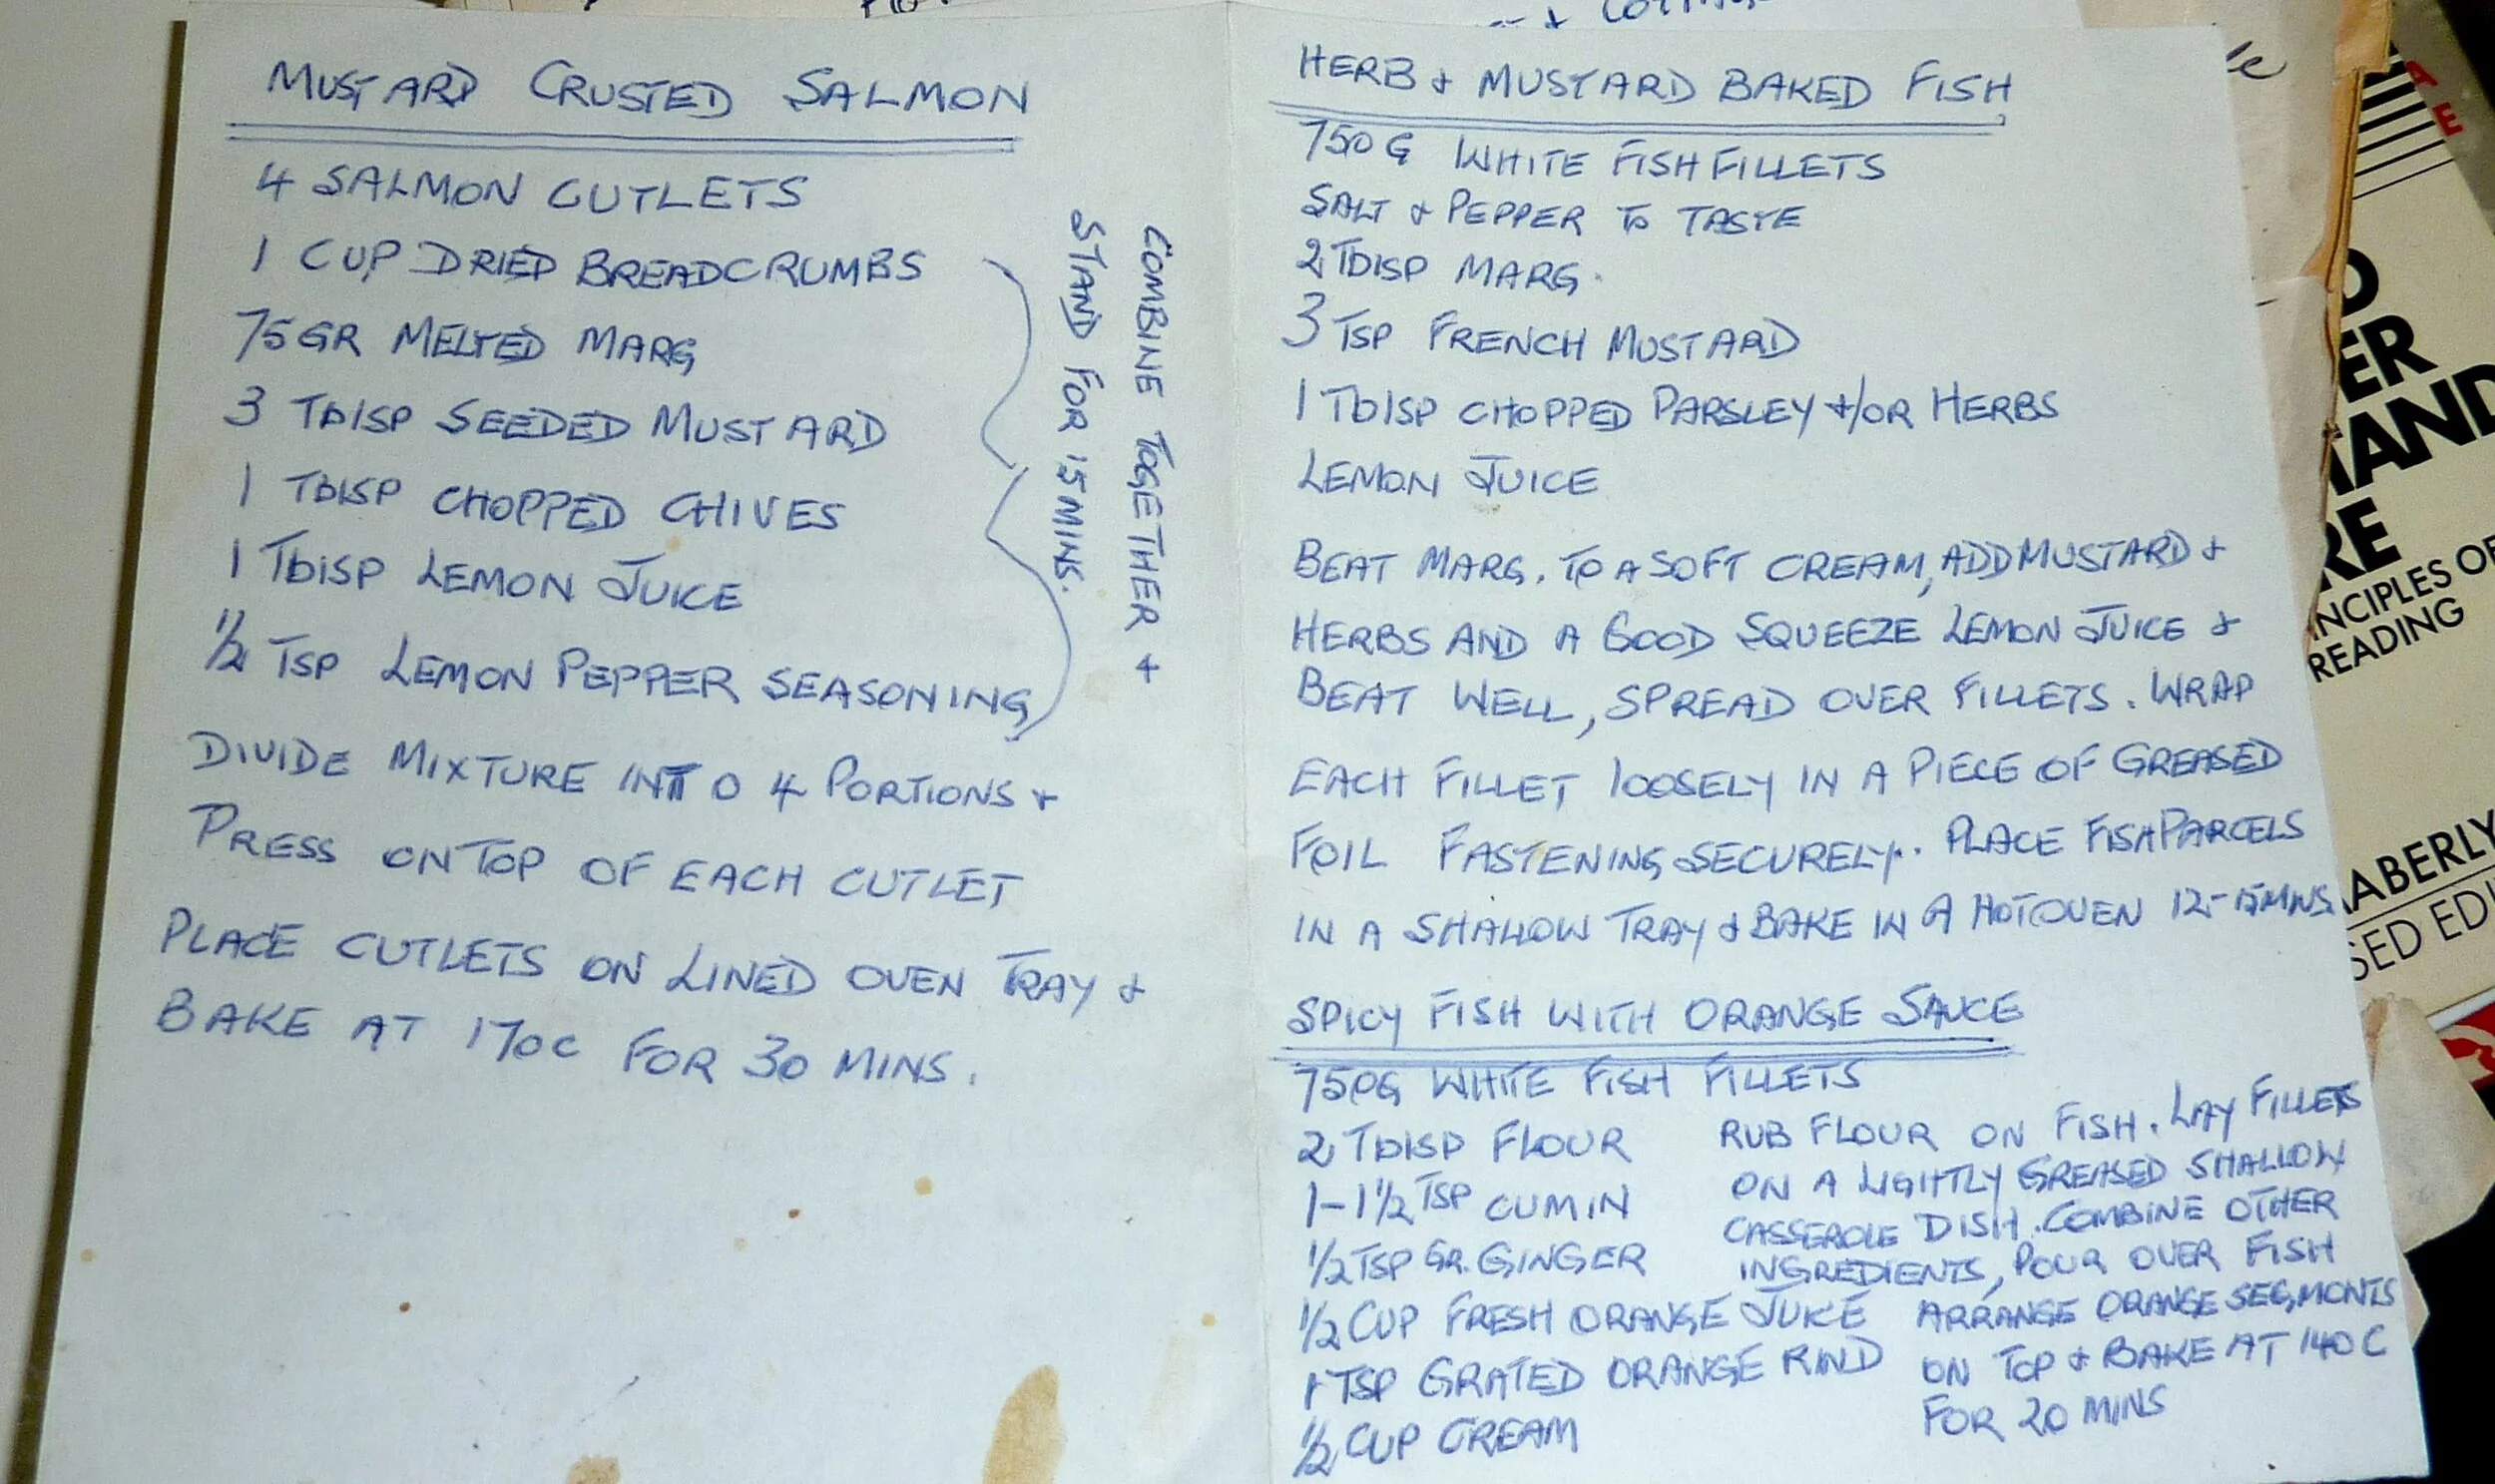 MUSTARD CRUSTED SALMON
4 SALMON CUTLETS
1 CUP DRIED BREADCRUMBS
75GR MELTED MARG
3 TBLSP SEEDED MUSTARD
1 TBLSP CHOPPED CHIVES
1 TBLSP LEMON JUICE
1/2 TSP LEMON PEPPER SEASONING
COMBINE TOGETHER +
STAND FOR 15 MINS.
DIVIDE MIXTURE INTO 4 PORTIONS +
PRESS ON TOP OF EACH CUTLET
PLACE CUTLETS ON LINED OVEN TRAY +
BAKE AT 170C FOR 30 MINS.
HERB + MUSTARD BAKED FISH
750G WHITE FISH FILLETS
SALT + PEPPER TO TASTE
2 TBLSP MARG.
3 TSP FRENCH MUSTARD
1 TBLSP CHOPPED PARSLEY +/OR HERBS
LEMON JUICE
BEAT MARG. TO A SOFT CREAM, ADD MUSTARD +
HERBS AND A GOOD SQUEEZE LEMON JUICE +
BEAT WELL, SPREAD OVER FILLETS. WRAP
EACH FILLET LOOSELY IN A PIECE OF GREASED
FOIL FASTENING SECURELY. PLACE FISH PARCELS
IN A SHALLOW TRAY + BAKE IN A HOT OVEN 12-15 MINS.
SPICY FISH WITH ORANGE SAUCE
750G WHITE FISH FILLETS
2 TBLSP FLOUR
1-1 1/2 TSP CUMIN
1/2 TSP GR. GINGER
1/2 CUP FRESH ORANGE JUICE
1 TSP GRATED ORANGE RIND
1/2 CUP CREAM
RUB FLOUR ON FISH. LAY FILLETS
ON A LIGHTLY GREASED SHALLOW
CASSEROLE DISH. COMBINE OTHER
INGREDIENTS, POUR OVER FISH
ARRANGE ORANGE SEGMONTS
ON TOP + BAKE AT 140C
FOR 20 MINS
READING